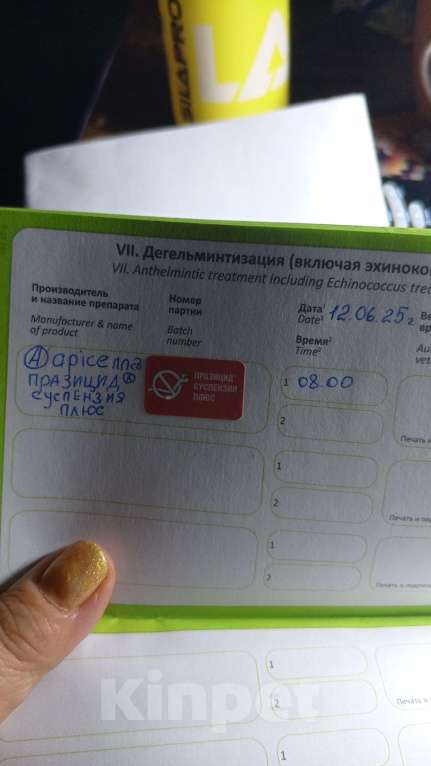 SILAPRO
LA
VII. Дегельминтизация (включая эхиноко
VII. Anthelmintic treatment including Echinococcus trea
Производитель
и название препарата
Manufacturer & name
of product
Номер
партии
Batch
number
Дата¹
Date¹
12.06.25г
Время²
Time²
Ве
вр
Au
vete
(А) арісеnna
ПРАЗИЦИД®
СУСПЕНЗИЯ
ПЛЮС
ПРАЗИЦИД®
СУСПЕНЗИЯ
ПЛЮС
1 08.00
2
Печать и
1
2
Печать и под
1
2
Печать и подпись
1
2
Печать и
1
Kinpet